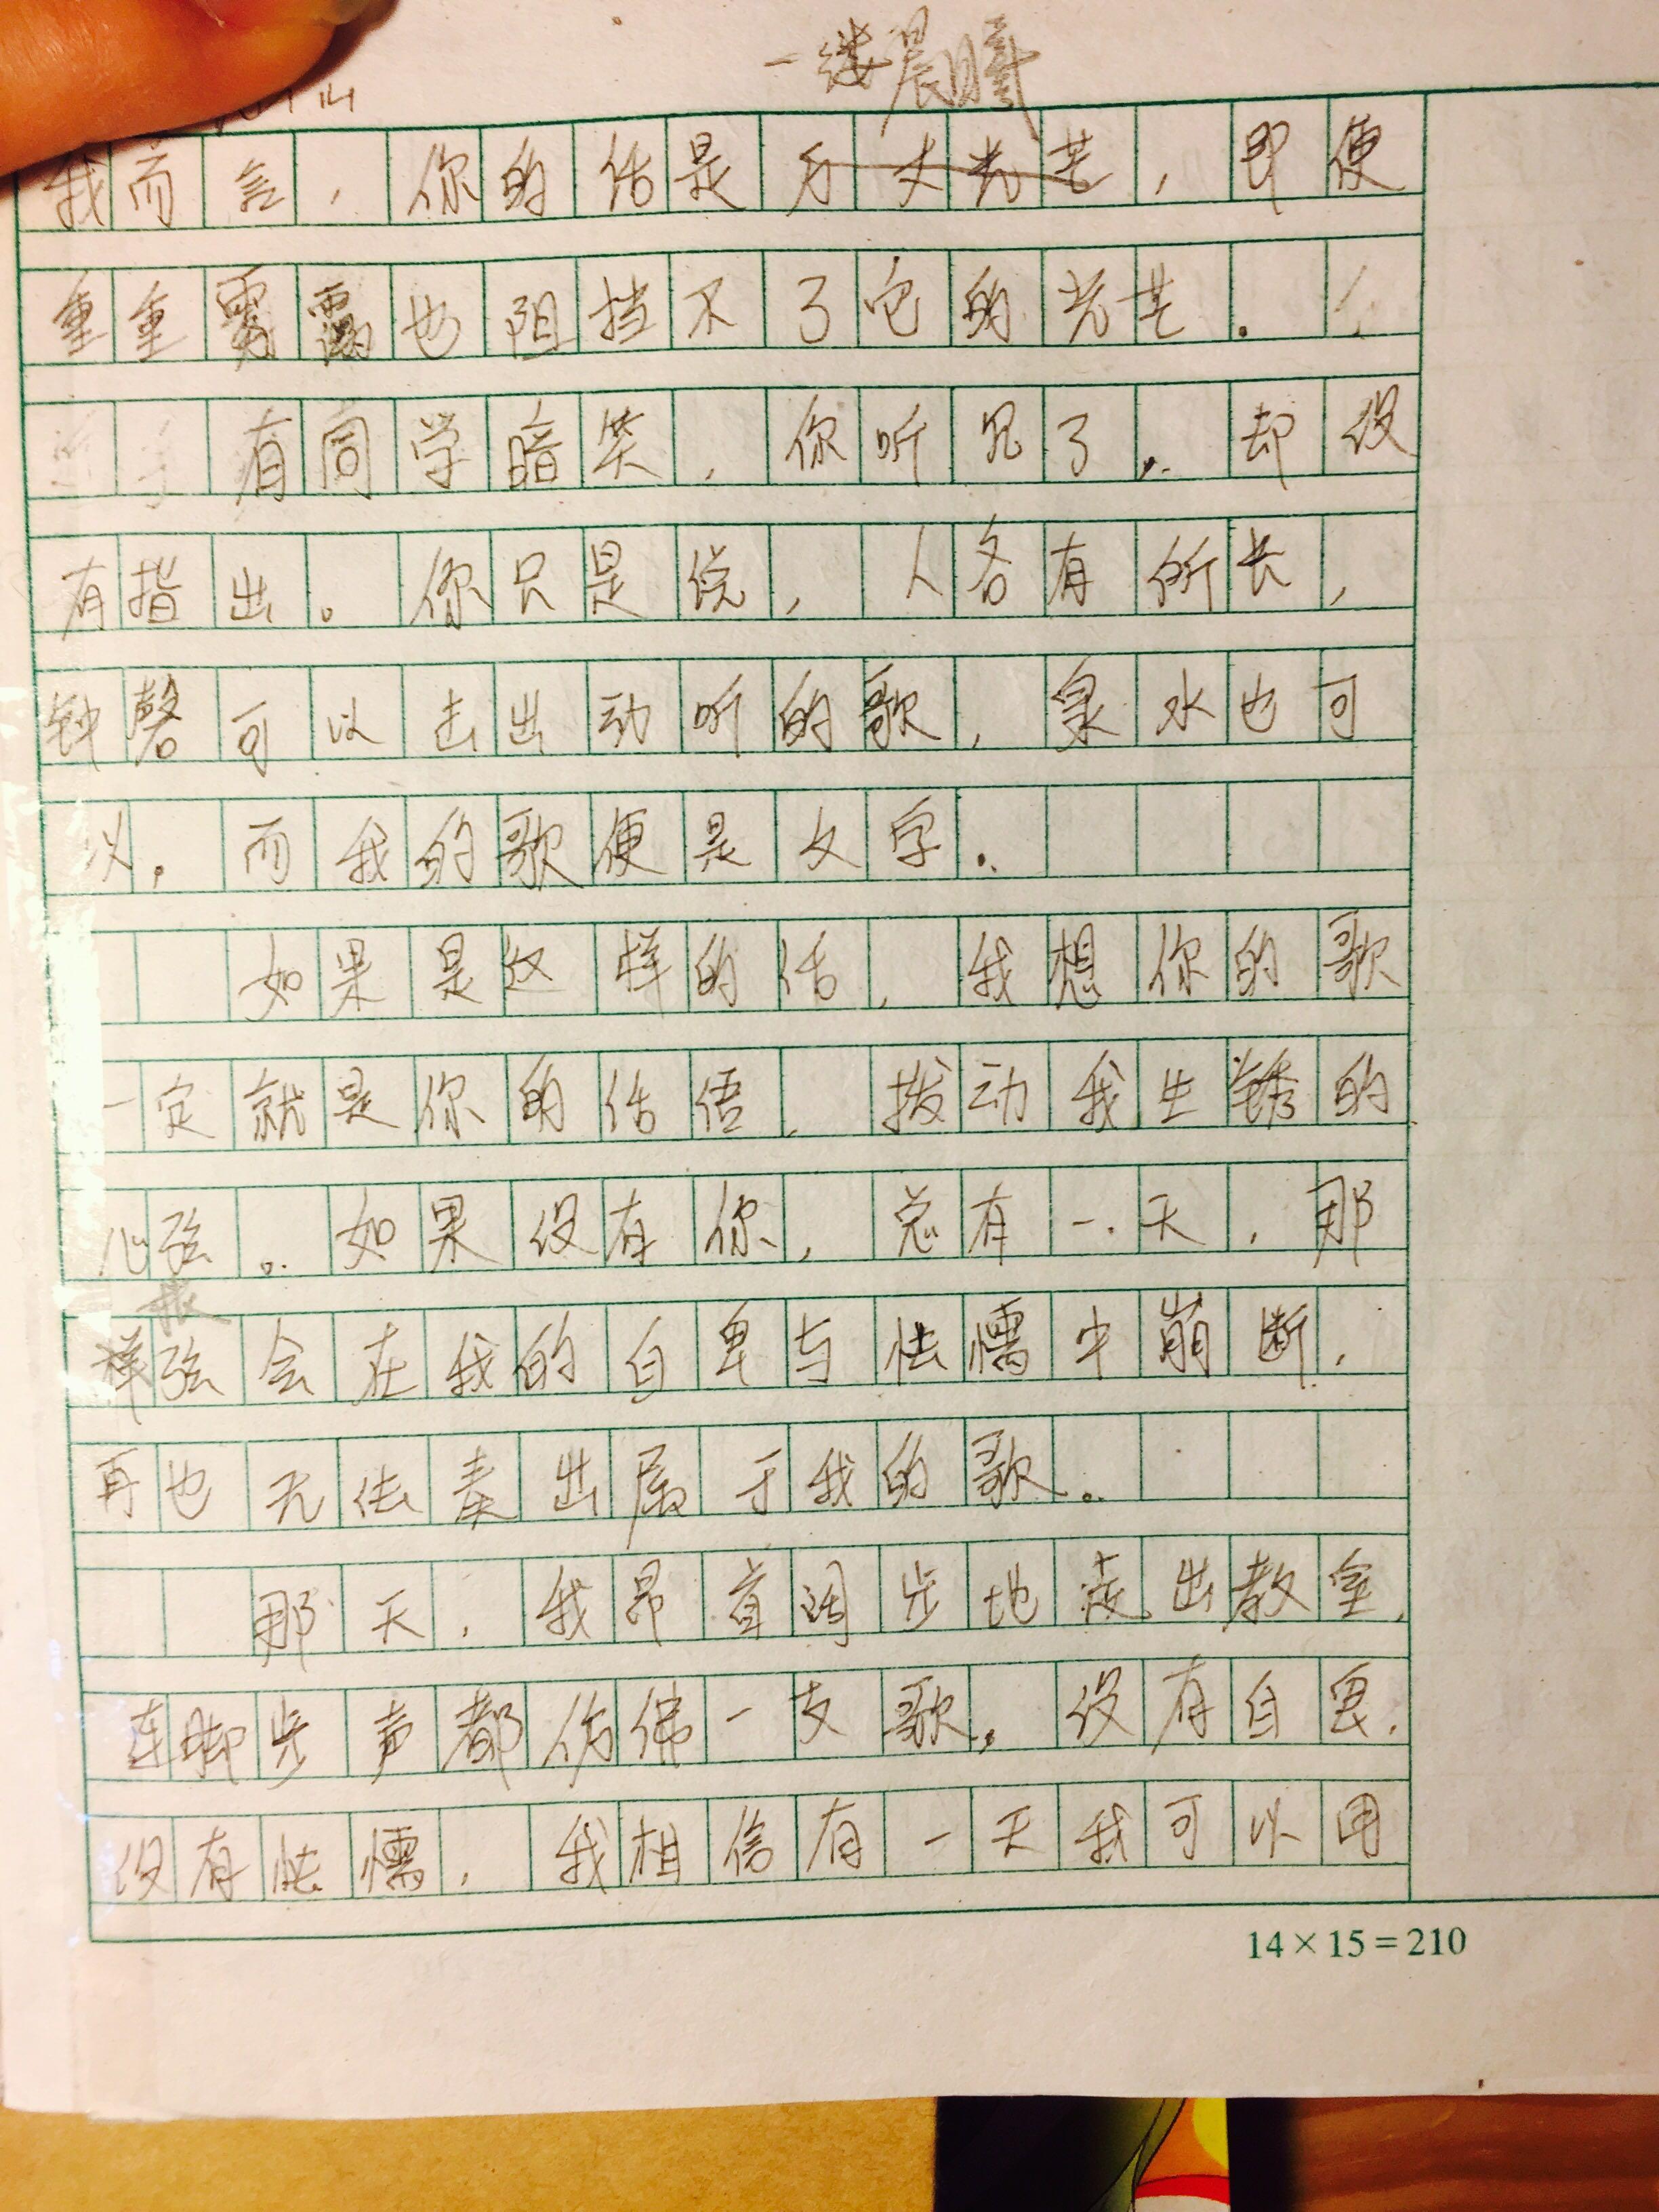 一缕晨曦
我而言，你的话是万丈光芒，即便
重重雾霭也阻挡不了它的光芒。
有同学暗笑，你听见了，却没
有指出。你只是说，人各有所长，
钟磬可以击出动听的歌，泉水也可
以，而我的歌便是文字。
如果是这样的话，我想你的歌
一定就是你的话语，拨动我生锈的
心弦。如果没有你，总有一天，那
根
样弦会在我的自卑与怯懦中崩断，
再也无法奏出属于我的歌。
那天，我昂首阔步地走出教室，
连脚步声都仿佛一支歌。没有自卑，
没有怯懦，我相信有一天我可以用
14×15=210